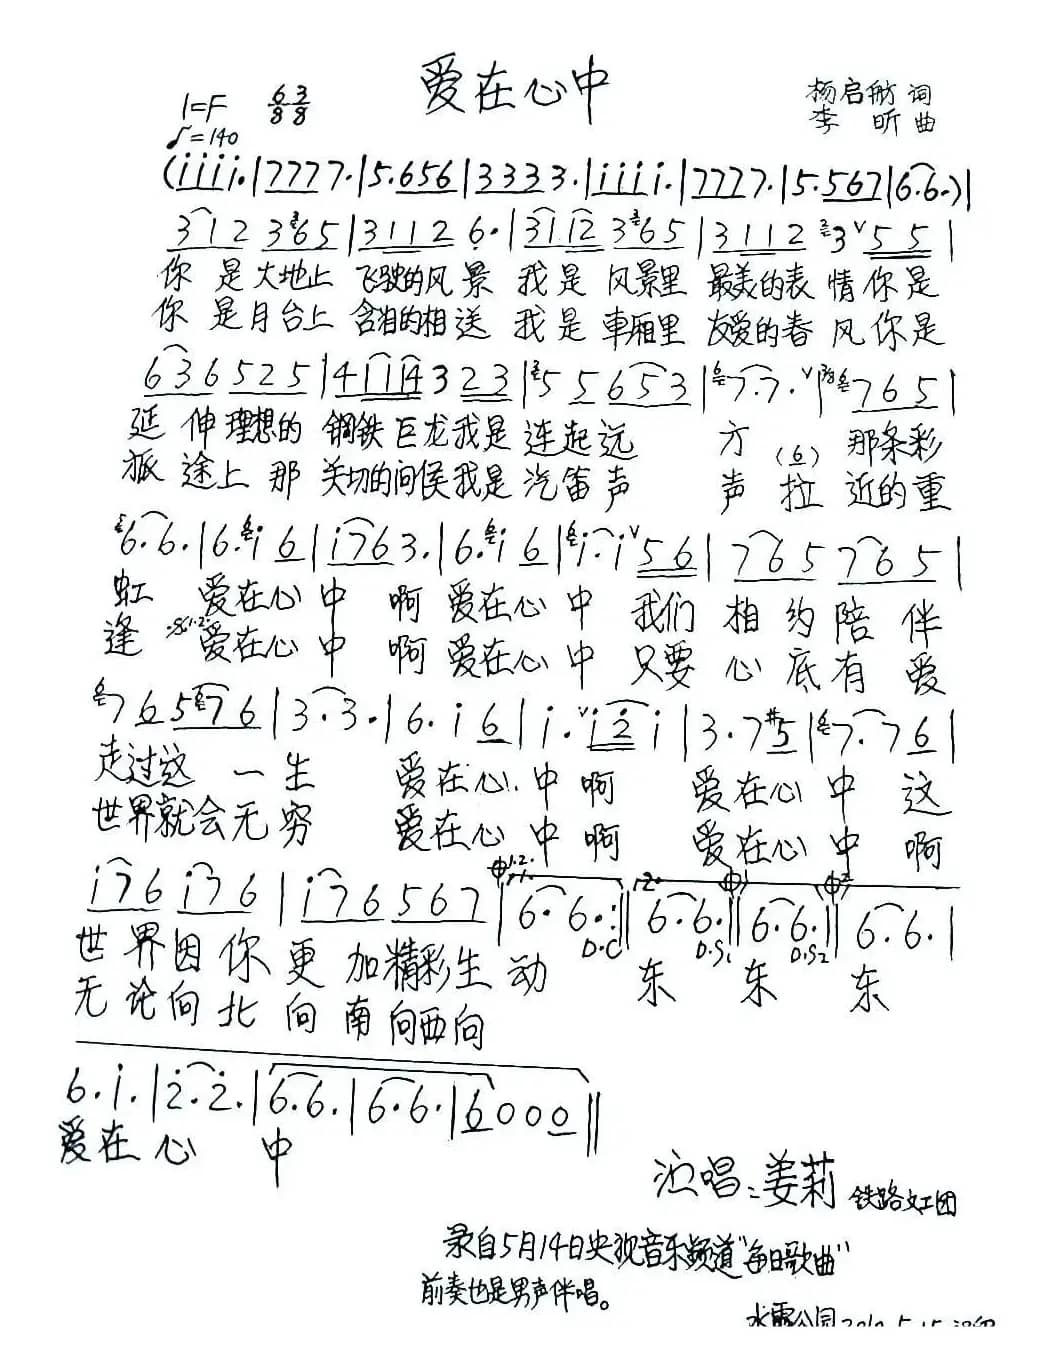 爱在心中
1=F 6/8 3/8
♩=140
杨启舫 词
李昕 曲
(i i i i. | 7 7 7 7. | 5. 6 5 6 | 3 3 3 3. | i i i i. | 7 7 7 7. | 5. 5 6 7 | 6. 6. ) |
3 1 2 3 6 5 | 3 1 1 2 6. | 3 1 1 2 3 6 5 | 3 1 1 2 3 V 5 5 |
你是大地上 飞驶的风景 我是风景里 最美的表情你是
你是月台上 含泪的相送 我是車厢里 友爱的春风你是
6 3 6 5 2 5 | 4 1 1 1 4 3 2 3 | 5 5 6 5 3 | 7. 7. V | 7 6 5 |
延伸理想的 钢铁巨龙我是连起远 方 那条彩
旅途上那 关切的问侯我是汽笛声 声 (6) 拉近的重
6. 6. | 6. i 6 | i 7 6 3. | 6. i 6 | i. i V 5 6 | 7 6 5 7 6 5 |
虹 爱在心中 啊 爱在心中 我们相约陪伴
逢 爱在心中 啊 爱在心中 只要心底有爱
7 6 5 7 6 | 3. 3. | 6. i 6 | i. V i 2 i | 3. 7 #5 | 7. 7 6 |
走过这一生 爱在心中啊 爱在心中 这
世界就会无穷 爱在心中啊 爱在心中 啊
i 7 6 i 7 6 | i 7 6 5 6 7 | 6. 6. :‖ 6. 6. ‖ 6. 6. ‖ 6. 6. |
D.C D.S1 D.S2
世界因你更加精彩生动 东 东 东
无论向北向南向西向
6. i. | 2. 2. | 6. 6. | 6. 6. | 6 0 0 0 ‖
爱在心中
演唱:姜莉 铁路文工团
录自5月14日央视音乐频道"每日歌曲"
前奏也是男声伴唱。
水云公园